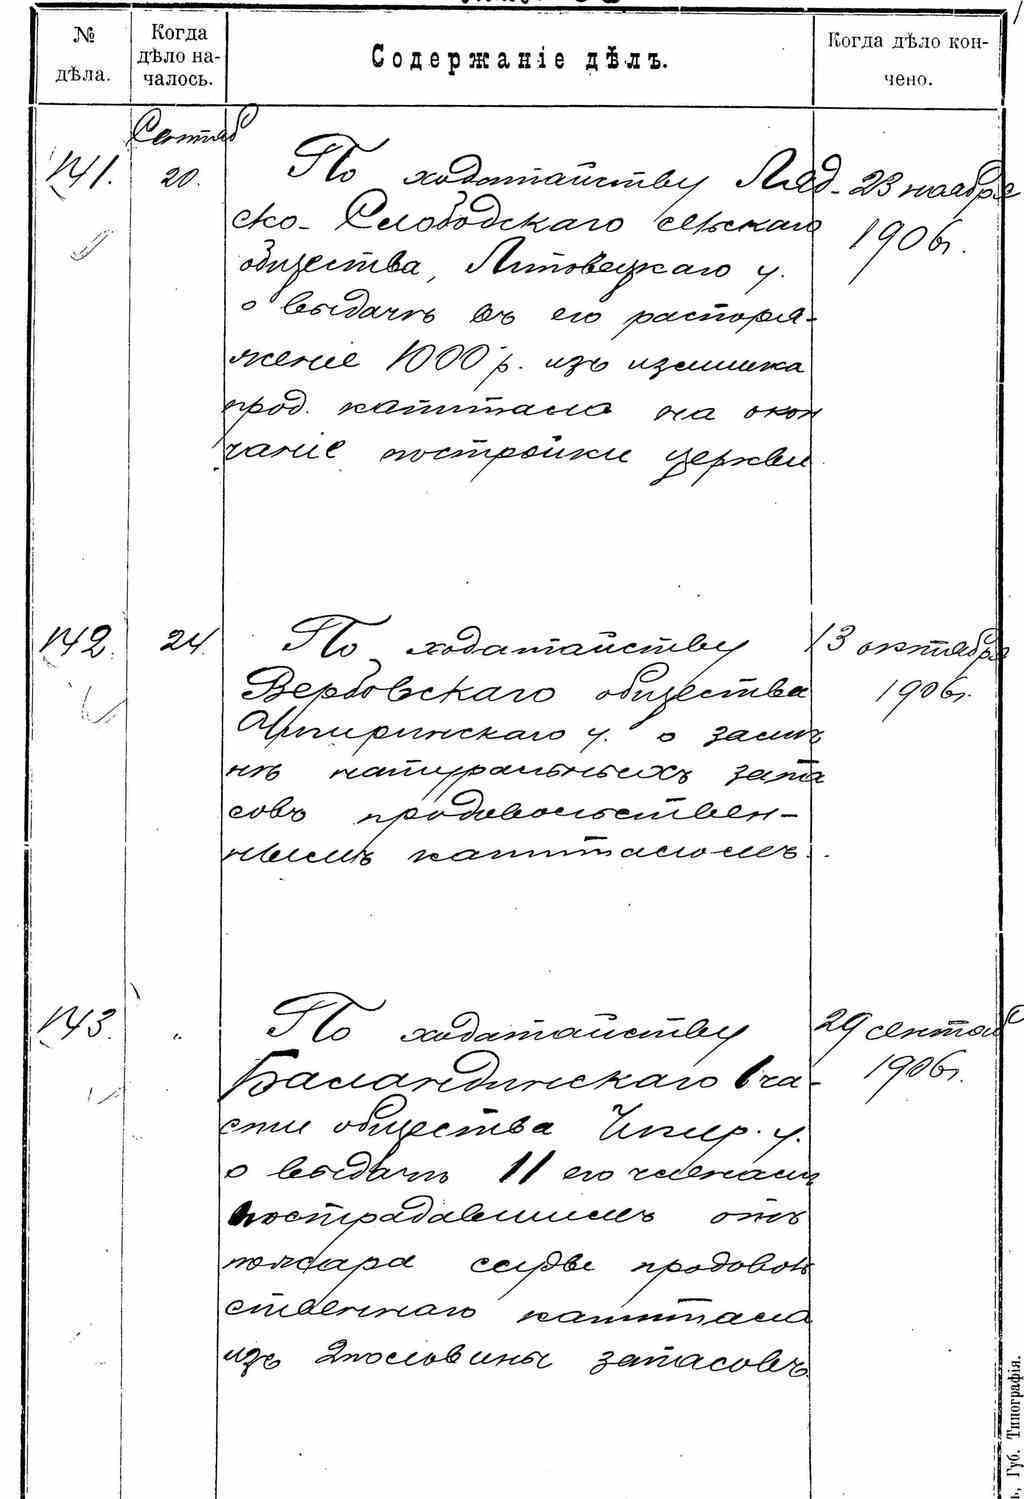 № дѣла.
Когда дѣло началось.
Содержаніе дѣлъ.
Когда дѣло кончено.
Сентяб
141.
20.
По ходатайству Ляд-
ско-Слободскаго сельскаго
общества, Липовецкаго у.
о выдачѣ въ его распоря-
женіе 1000 р. изъ излишка
прод. капитала на окон
чаніе постройки церкви
23 ноября
1906г.
142.
24.
По ходатайству
Вербовскаго общества
Чигиринскаго у. о замѣ
нѣ натуральныхъ запа
совъ продовольствен-
нымъ капиталомъ.
13 октября
1906г.
143.
"
По ходатайству
Баландинскаго 1 ча-
сти общества Чигир. у.
о выдачѣ 11 его членамъ
пострадавшимъ отъ
пожара ссуды продоволь
ственнаго капитала
изъ 2 половины запасовъ
29 сентяб
1906г.
Губ. Типографія.